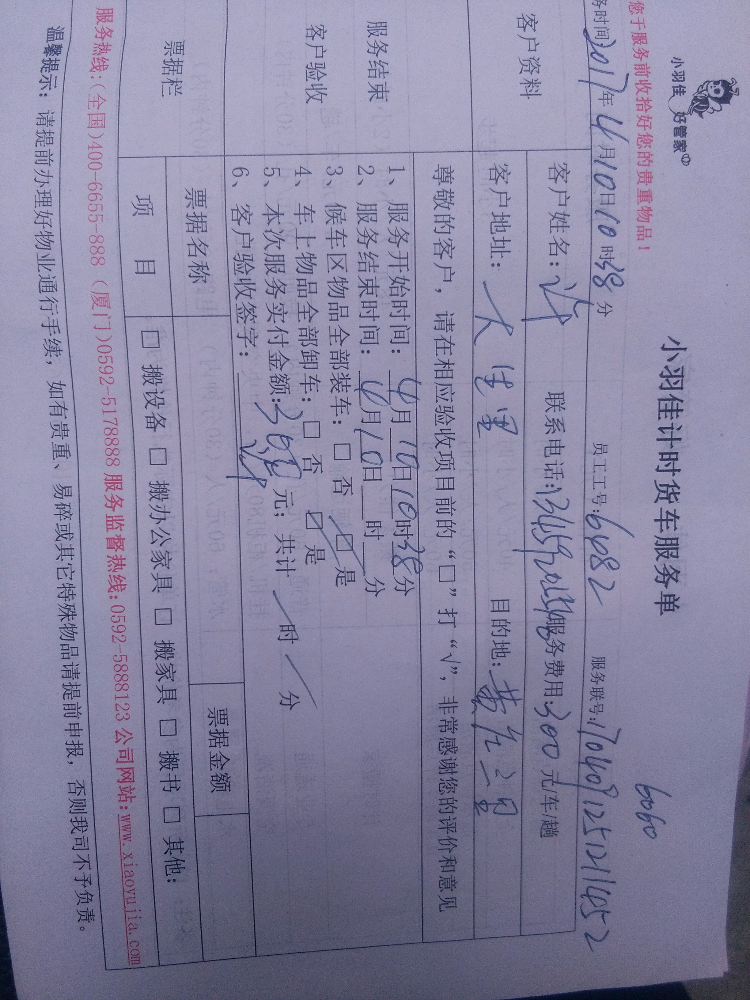 小羽佳 好管家
小羽佳计时货车服务单
6060
您于服务前收拾好您的贵重物品！
员工工号: 6982
服务联号: 1704091251211452
务时间: 2017年4月10日10时38分
客户资料
客户姓名: 许 联系电话: 服务费用: 300 元/车/趟
客户地址: 大生里 目的地:
尊敬的客户，请在相应验收项目前的“□”打“√”，非常感谢您的评价和意见
服务结束
客户验收
1、服务开始时间: 4月10日10时38分
2、服务结束时间: 4月10日 时 分
3、候车区物品全部装车: □ 否 ☑ 是
4、车上物品全部卸车: □ 否 ☑ 是
5、本次服务实付金额: 300 元; 共计 / 时 / 分
6、客户验收签字: 许
票据栏
票据名称 票据金额
项 目
□ 搬设备 □ 搬办公家具 □ 搬家具 □ 搬书 □ 其他:
服务热线:(全国)400-6655-888 (厦门)0592-5178888 服务监督热线:0592-5888123 公司网站:www.xiaoyujia.com
温馨提示: 请提前办理好物业通行手续，如有贵重、易碎或其它特殊物品请提前申报，否则我司不予负责。